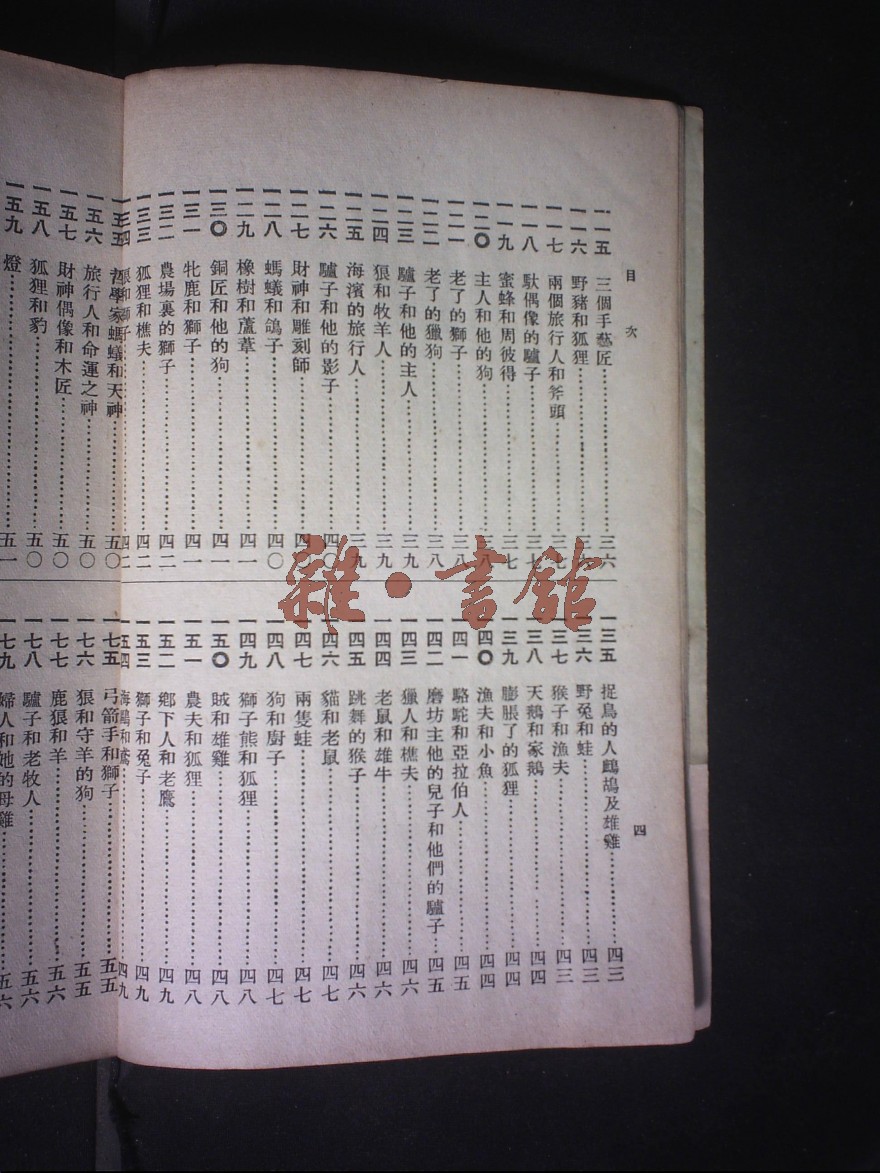 目次
四
一一五 三個手藝匠……三六
一一六 野豬和狐狸……三六
一一七 兩個旅行人和斧頭……三七
一一八 馱偶像的驢子……三七
一一九 蜜蜂和周彼得……三七
一二〇 主人和他的狗……三八
一二一 老了的獅子……三八
一二二 老了的獵狗……三八
一二三 驢子和他的主人……三九
一二四 狼和牧羊人……三九
一二五 海濱的旅行人……三九
一二六 驢子和他的影子……四〇
一二七 財神和雕刻師……四〇
一二八 螞蟻和鴿子……四〇
一二九 橡樹和蘆葦……四一
一三〇 銅匠和他的狗……四一
一三一 牝鹿和獅子……四一
一三二 農場裏的獅子……四二
一三三 狐狸和樵夫……四二
一三四 狼和獅子……四二
一三五 捉鳥的人鷓鴣及雄雞……四三
一三六 野兔和蛙……四三
一三七 猴子和漁夫……四三
一三八 天鵝和家鵝……四四
一三九 膨脹了的狐狸……四四
一四〇 漁夫和小魚……四四
一四一 駱駝和亞拉伯人……四五
一四二 磨坊主他的兒子和他們的驢子……四五
一四三 獵人和樵夫……四六
一四四 老鼠和雄牛……四六
一四五 跳舞的猴子……四六
一四六 貓和老鼠……四七
一四七 兩隻蛙……四七
一四八 狗和廚子……四七
一四九 獅子熊和狐狸……四八
一五〇 賊和雄雞……四八
一五一 農夫和狐狸……四八
一五二 鄉下人和老鷹……四九
一五三 獅子和兔子……四九
一五四 海鷗和鳶……四九
一五五 哲學家螞蟻和天神……五〇
一五六 旅行人和命運之神……五〇
一五七 財神偶像和木匠……五〇
一五八 狐狸和豹……五〇
一五九 燈……五一
一七五 弓箭手和獅子……五五
一七六 狼和守羊的狗……五五
一七七 鹿狼和羊……五六
一七八 驢子和老牧人……五六
一七九 婦人和她的母雞……五六
雜·書館